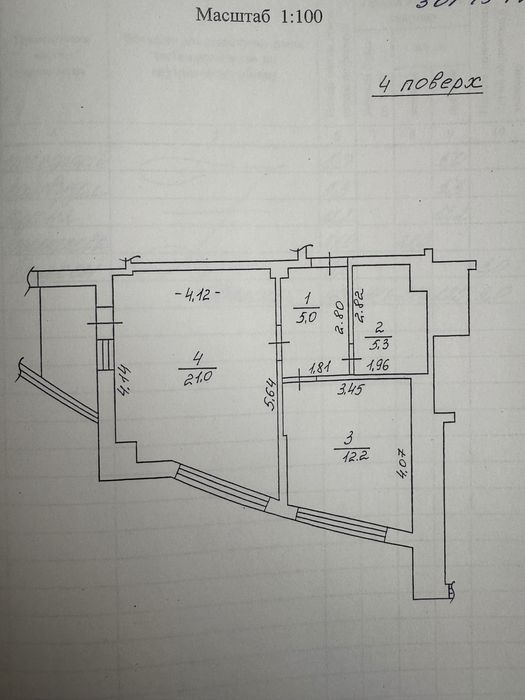 Масштаб 1:100
4 поверх
-4,12-
1
5.0
2.80
2.82
2
5.3
4
21.0
4,14
5,64
1,81
1,96
3,45
3
12.2
4,07